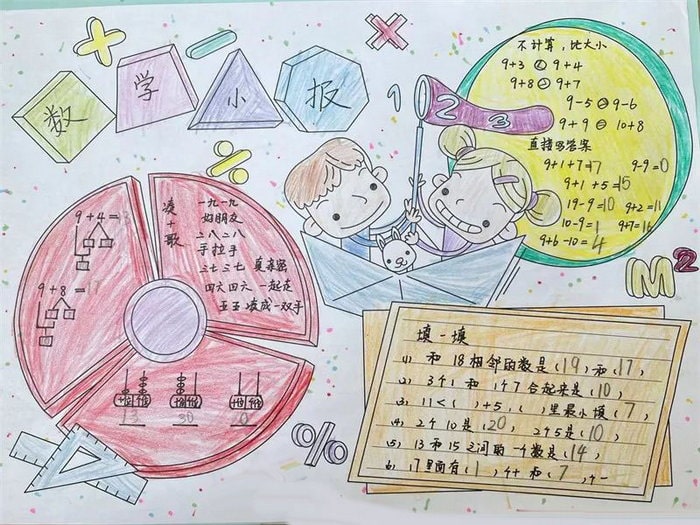 数学小报
1 2 3
不计算，比大小
9+3 < 9+4
9+8 > 9+7
9-5 9-6
9+9 10+8
直接写答案
9+1+7=17 9-9=0
9+1+5=15
19-9=10 9+2=11
10-9=1 9+7=16
9+6-10=4
M²
9+4=13
9+8=17
凑十歌
一九一九
好朋友
二八二八
手拉手
三七三七 真亲密
四六四六 一起走
五五凑成一双手
十个 十个 十个
13 30 0
%
填一填
(1) 和18相邻的数是(19)和(17)
(2) 3个1和1个7合起来是(10)
(3) 11<( )+5,( )里最小填(7)
(4) 2个10是(20), 2个5是(10)
(5) 13和15之间的一个数是(14)
(6) 17里面有(1)个十和(7)个一